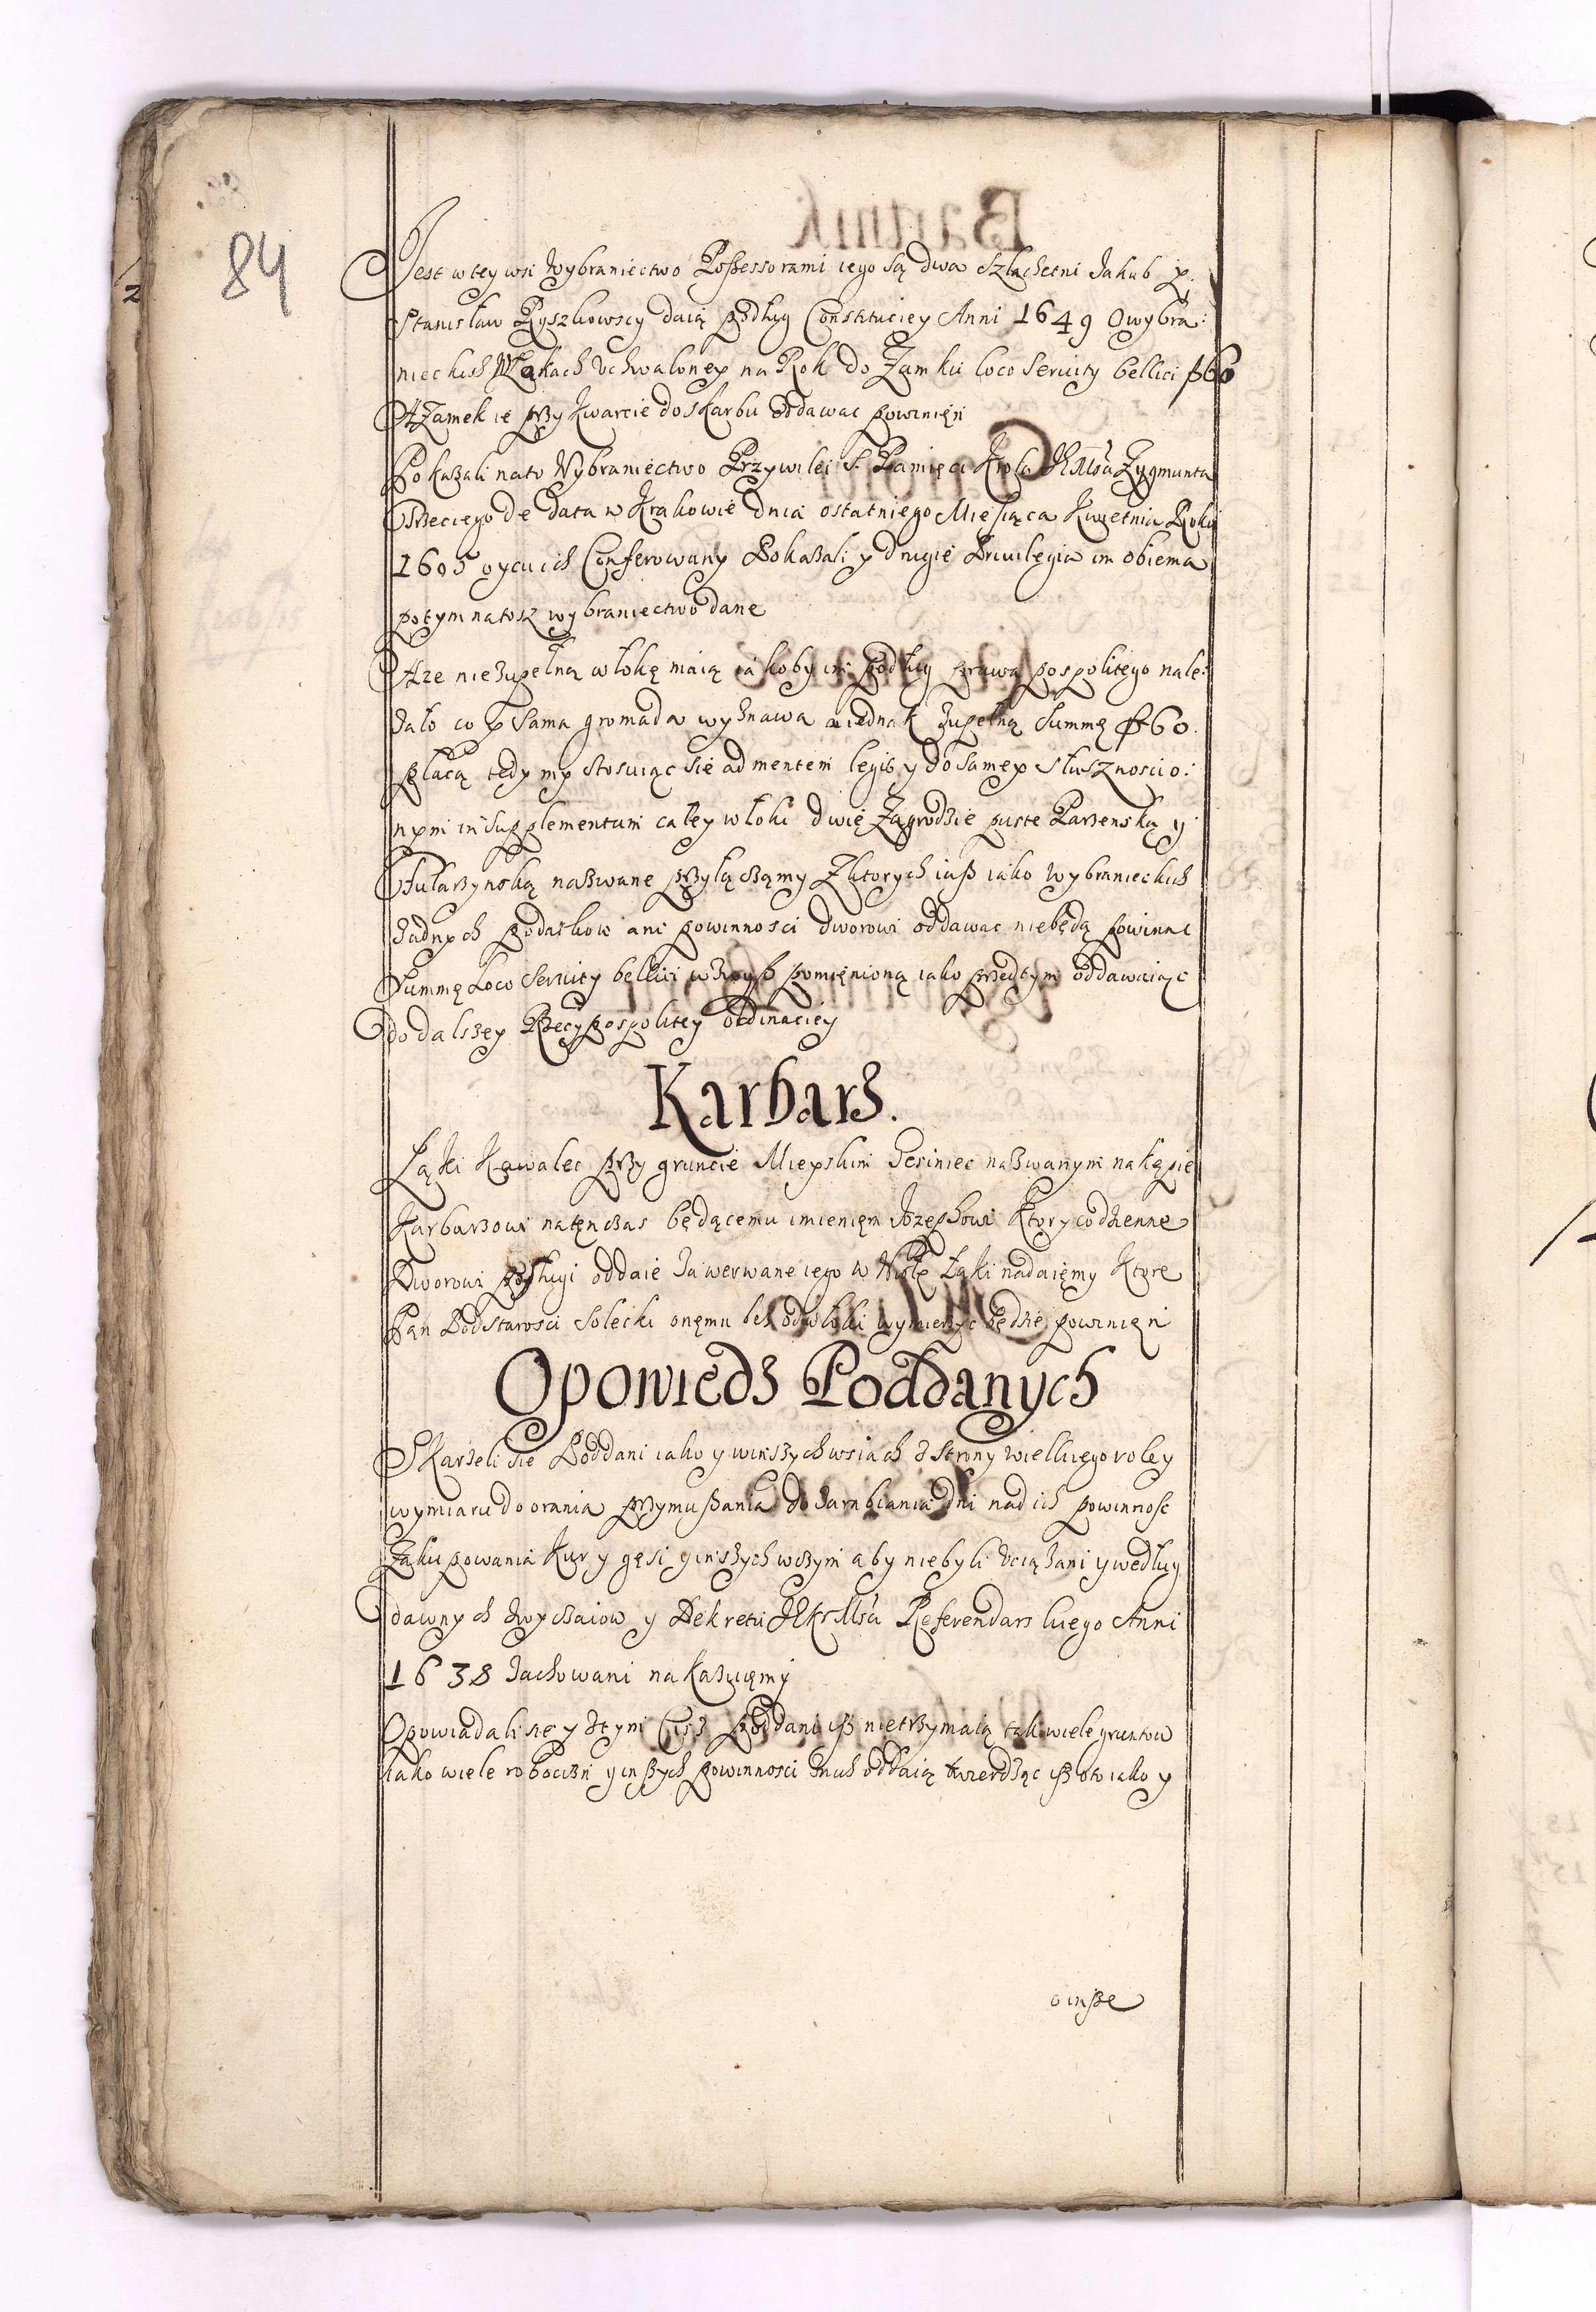 84
Jest w tey wsi Wybraniectwo Possessorami iego są dwa Szlachetni Jakub y
Stanisław Ryszkowscy daią podług Constituciey Anni 1649 o wybra:
nieckich Włokach Uchwaloney na Rok do Zamku loco Servity bellici f 60
A Zamek ie przy Kwarcie do skarbu oddawac powinięn
Pokazali na to Wybraniectwo Przywilei S. Pamięci Krola JKMsci Zygmunta
Trzeciego de data w Krakowie dnia ostatniego Miesiąca Kwietnia Roku
1605 oycu ich Conferowany Pokazali y drugie Privilegia im obiema
potym na tosz wybraniectwo dane
A ze nie zupełną włokę maią iakoby im podług prawa pospolitego nale:
zało co y sama gromada wyznawa a iednak zupełną Summę f 60.
płacą tedy my stosuiąc się ad mentem legis y do samey słusznosci o:
nym in supplementum całey włoki dwie Zagrodzie puste Parzenską y
Stularzynską nazwane przyłączamy Z ktorych iuß iako Wybranieckich
zadnych podatkow ani powinnosci dworowi oddawac niebędą powinni
Summę Loco Servity bellici wzwyß pomięnioną iako przedtym oddawaiąc
do dalszey Rzeczypospolitey ordinaciey
Karbarz.
Łąki Kawalec przy gruncie Mieyskim Jesiniec nazwanym na kępie
Karbarzowi natenczas będącemu imienięm Jozephowi Ktory codzienne
Dworowi posługi oddaie Za werwane iego w Wisłę Łąki nadaięmy Ktore
Pan Podstarosci Solecki onęmu bez odwłoki wymierzyc będzie powinięn
Opowiedz Poddanych
Skarżeli się Poddani iako y w inszych wsiach z strony wielkiego roley
wymiaru do orania przymußania do zarabiania dni nad ich powinnosc
Zakupowania Kur y gęsi y inszych w czym aby niebyli uciązani y według
dawnych zwyczaiow y Dekretu JKrMsci Referendarskiego Anni
1638 zachowani nakazuięmy
Opowiadali się y z tym Ciż poddani iß nietrzymaią tak wiele gruntow
iako wiele robocizn y inßych powinnosci z nich oddaią twierdząc iß oto iako y
o inße